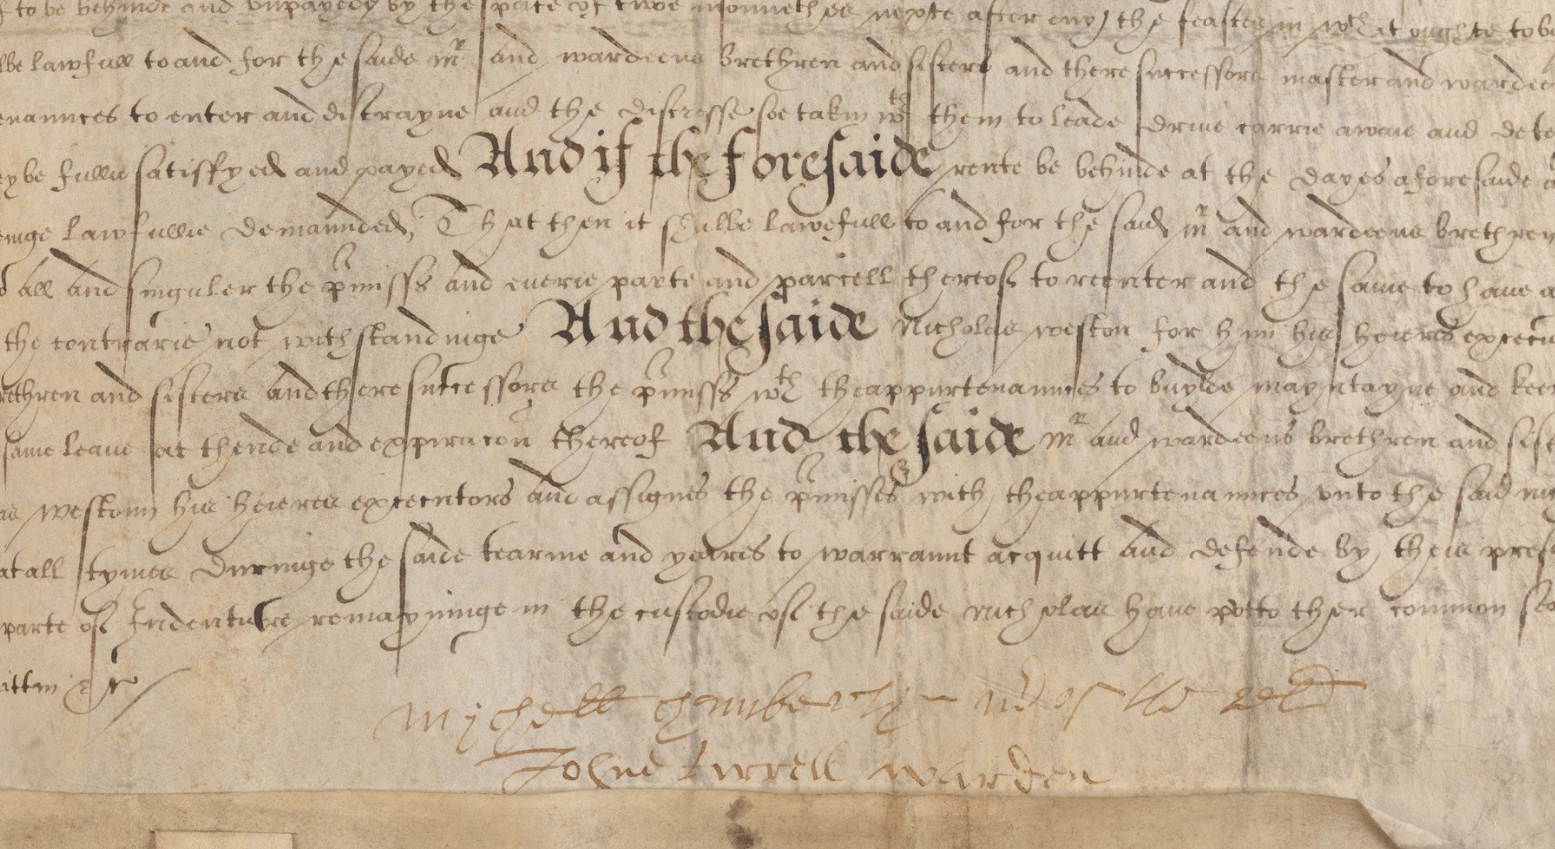 to be behinde and unpayed by the space of twoe monnethes nexte after eny the feastes in wch it oughte to be
lbe lawfull to and for the saide mr and wardeens brethren and sisters and there successors master and wardee
enannces to enter and distrayne and the distresse soe taken wth them to leade drive carrie awaie and dete
ey be fullie satisfyed and payed And if the foresaide rente be behinde at the dayes aforesaide
einge lawfullie demaunded, That then it shalbe lawefull to and for the said mr and wardeens brethren
all and singuler the pmisss and everie parte and parcell thereof to reenter and the same to have a
the contrarie not withstandinge And the saide Nicholas weston for him his heires execu
rethren and sisters and there successors the pmisss wth theappurtenannces to buylde mayntayne and keep
same leave at thende and expiracon thereof And the saide mr and wardeens brethren and sist
as westonn his heieres executors and assignes the pmisses with theappurtenannces unto the said
at all tymes duringe the saide tearme and yeares to warrannt acquitt and defende by theis pres
parte of Indenture remayninge in the custodie of the saide Nicholas have putto ther common sea
itten
mychell chamberlyn
Johne Tirrell warden